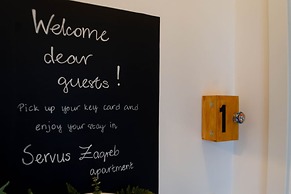 Welcome
dear
guests!
Pick up your key card and
enjoy your stay in
Servus Zagreb
apartment
1